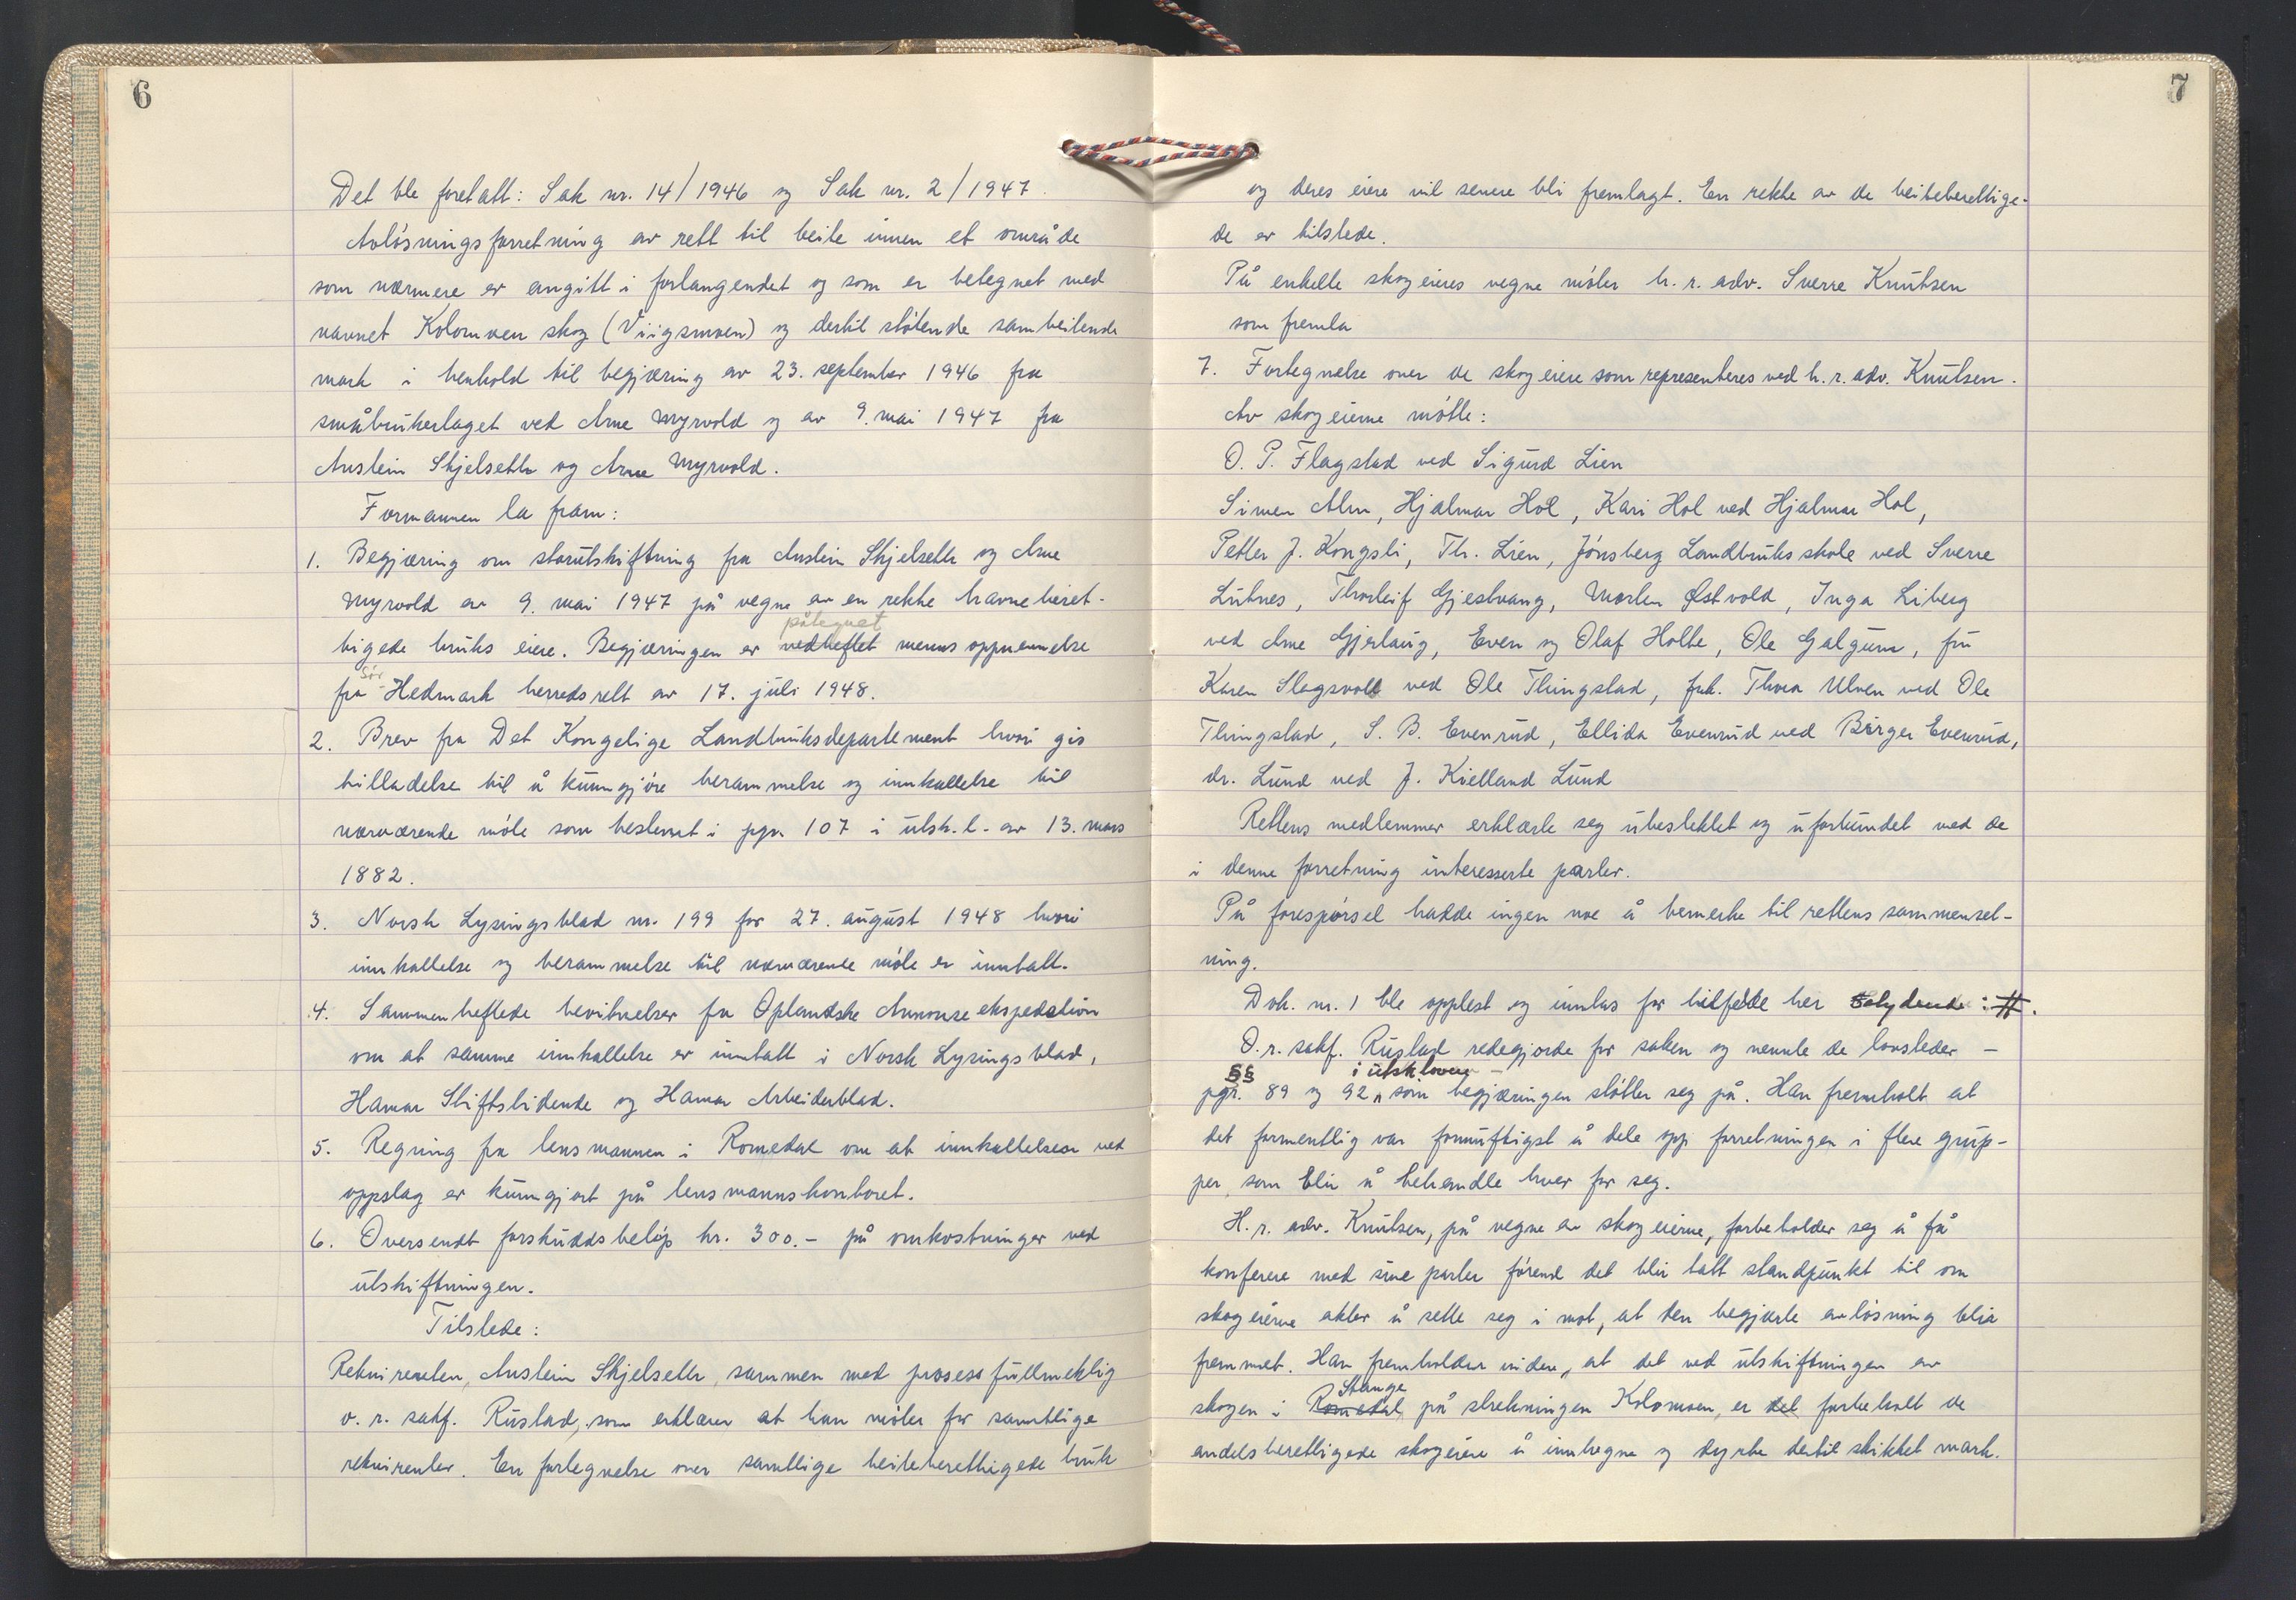 6
Det ble foretatt: Sak nr. 14/1946 og Sak nr. 2/1947.
Avløsningsforretning av rett til beite innen et område
som nærmere er angitt i forlangendet og som er betegnet med
navnet Kolomoen skog (Viigsmoen) og dertil støtende sambeitende
mark i henhold til begjæring av 23. september 1946 fra
småbrukerlaget ved Arne Myrvold og av 9. mai 1947 fra
Anstein Skjelseth og Arne Myrvold.
Formannen la fram:
1. Begjæring om storutskiftning fra Anstein Skjelseth og Arne
Myrvold av 9. mai 1947 på vegne av en rekke havneberet-
påtegnet
tigede bruks eiere. Begjæringen er vedheftet menns oppnevnelse
Sør
fra Hedmark herredsrett av 17. juli 1948.
2. Brev fra Det Kongelige Landbruksdepartement hvori gis
tilladelse til å kunngjøre berammelse og innkallelse til
nærværende møte som bestemt i pgr. 107 i utsk.l. av 13. mars
1882.
3. Norsk Lysingsblad nr. 199 for 27. august 1948 hvori
innkallelse og berammelse til nærværende møte er inntatt.
4. Sammenheftede bevitnelser fra Oplandske Annonse ekspedition
om at samme innkallelse er inntatt i Norsk Lysingsblad,
Hamar Stiftstidende og Hamar Arbeiderblad.
5. Regning fra lensmannen i Romedal om at innkallelsen ved
oppslag er kunngjort på lensmannskontoret.
6. Oversendt forskuddsbeløp kr. 300.- på omkostninger ved
utskiftningen.
Tilstede:
Rekvirenten, Anstein Skjelseth, sammen med prosessfullmektig
o. r. sakf. Rustad, som erklærer at han møter for samtlige
rekvirenter. En fortegnelse over samtlige beiteberettigede bruk
7
og deres eiere vil senere bli fremlagt. En rekke av de beiteberettige-
de er tilstede.
På enkelte skogeieres vegne møter h. r. adv. Sverre Knutsen
som fremla
7. Fortegnelse over de skogeiere som representeres ved h. r. adv. Knutsen.
Av skogeierne møtte:
O. P. Flagstad ved Sigurd Lien
Simen Alm, Hjalmar Hol, Kari Hol ved Hjalmar Hol,
Petter J. Kongsli, Th. Lien, Jønsberg Landbruksskole ved Sverre
Lutnes, Thorleif Gjestvang, Morten Østvold, Inga Liberg
ved Arne Gjerlaug, Even og Olaf Holte, Ole Galgum, fru
Karen Slagsvold ved Ole Thingstad, frk. Thora Ulven ved Ole
Thingstad, S. B. Evenrud, Ellida Evenrud ved Birger Evenrud,
dr. Lund ved J. Kielland Lund
Rettens medlemmer erklærte seg ubeslektet og uforbundet med de
i denne forretning interesserte parter.
På forespørsel hadde ingen noe å bemerke til rettens sammenset-
ning.
Dok. nr. 1 ble opplest og inntas for tilfelde her sålydende : #.
O. r. sakf. Rustad redegjorde for saken og nevnte de lovsteder –
§§ i utskloven –
pgr. 89 og 92, som begjæringen støtter seg på. Han fremholdt at
det formentlig var fornuftigst å dele opp forretningen i flere grup-
per, som blir å behandle hver for seg.
H. r. adv. Knutsen, på vegne av skogeierne, forbeholder seg å få
konferere med sine parter førend det blir tatt standpunkt til om
skogeierne akter å sette seg i mot, at den begjærte avløsning blir
fremmet. Han fremholder videre, at det ved utskiftningen av
Stange
skogen i Romedal på strekningen Kolomoen, er det forbeholdt de
andelsberettigede skogeiere å innhegne og dyrke dertil skikket mark.